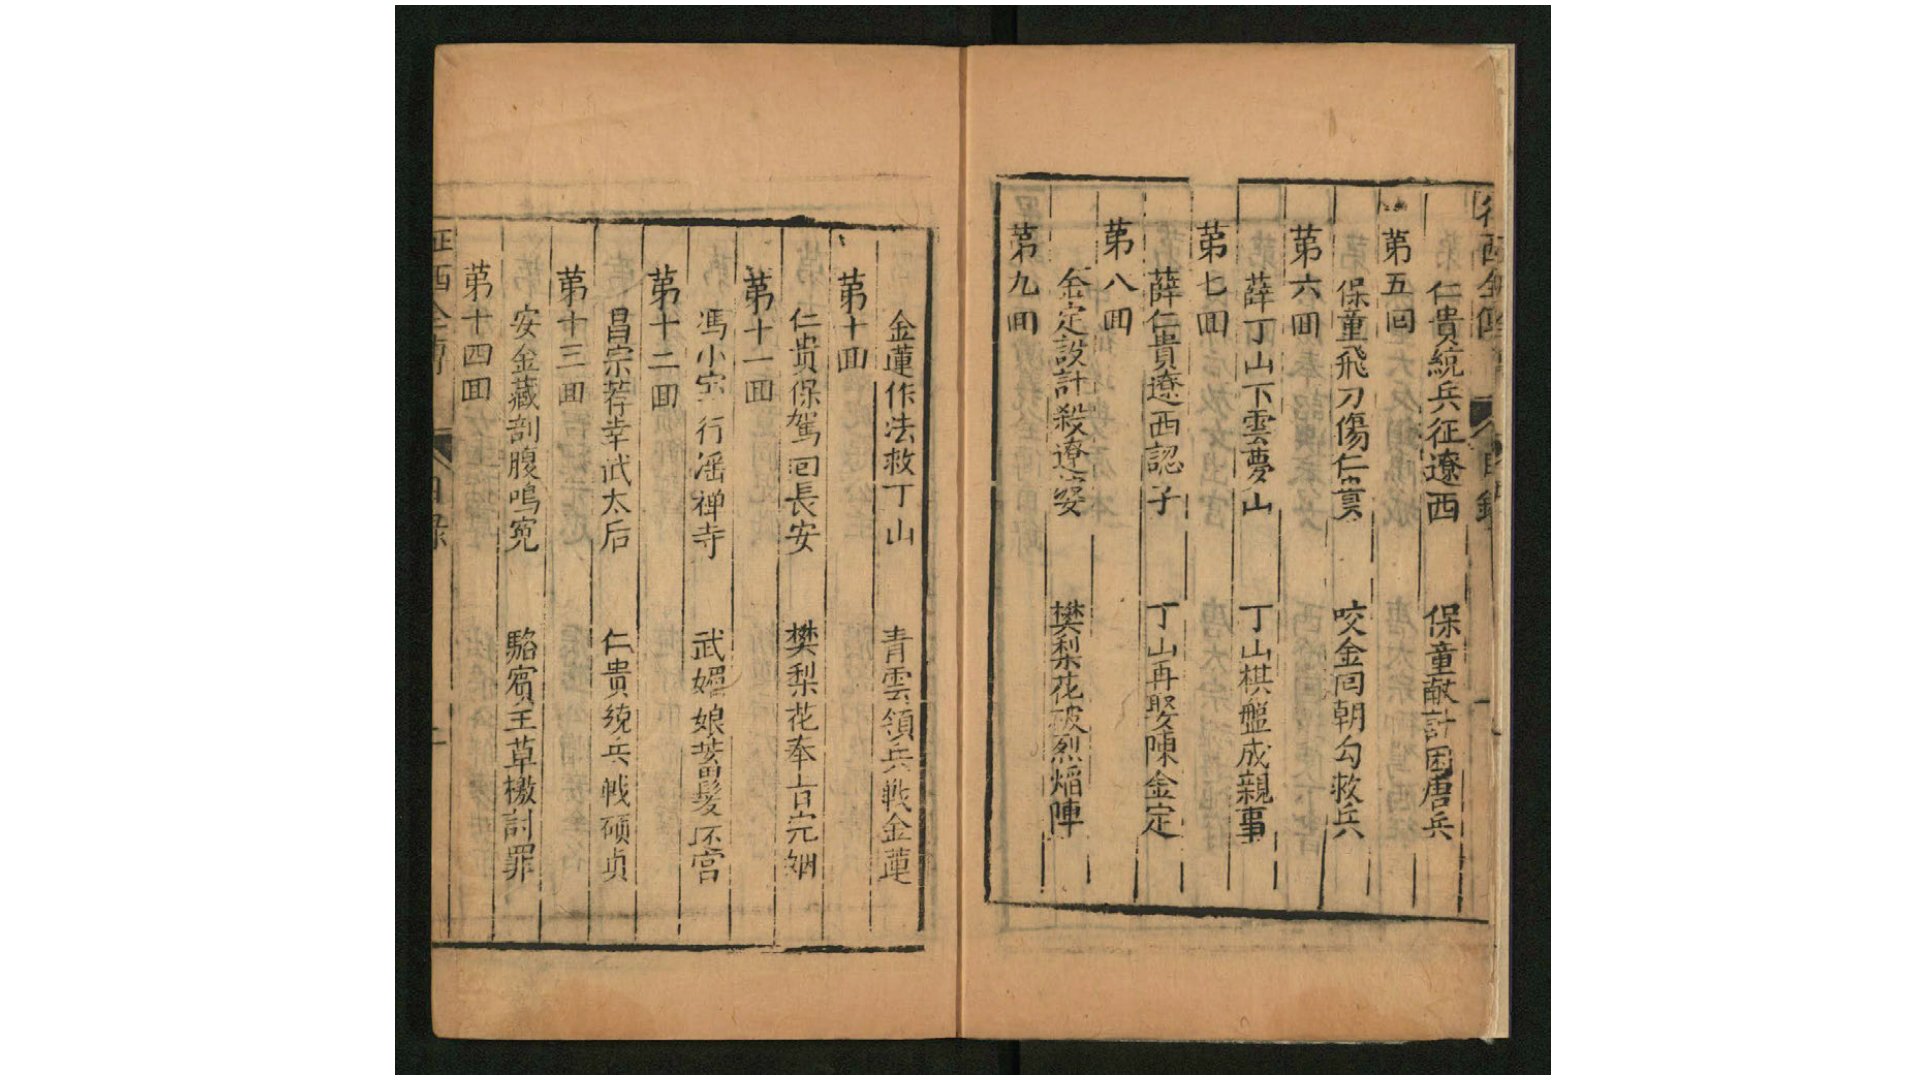 征西全傳 目錄 一
仁貴統兵征遼西 保童獻計困唐兵
第五回
保童飛刀傷仁貴 咬金回朝勾救兵
第六囬
薛丁山下雲夢山 丁山棋盤成親事
第七囬
薛仁貴遼西認子 丁山再娶陳金定
第八囬
金定設計殺遼婆 樊梨花破烈焰陣
第九囬
金蓮作法救丁山 青雲領兵戰金蓮
第十囬
仁贵保駕回長安 樊梨花奉旨完姻
第十一囬
馮小宝行淫禅寺 武媚娘蓄髪还宫
第十二囬
昌宗若幸武太后 仁贵统兵战碩贞
第十三囬
安金藏剖腹鳴冤 駱賓王草檄討罪
第十四囬
征西全傳 目录 二